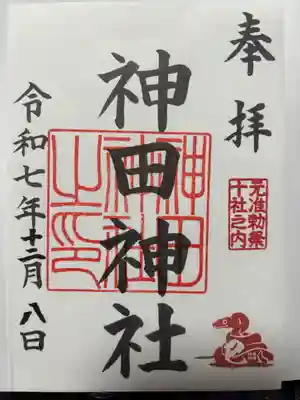 奉拝
元准勅祭
十社之内
神田神社
神田神社之印
令和七年十二月八日